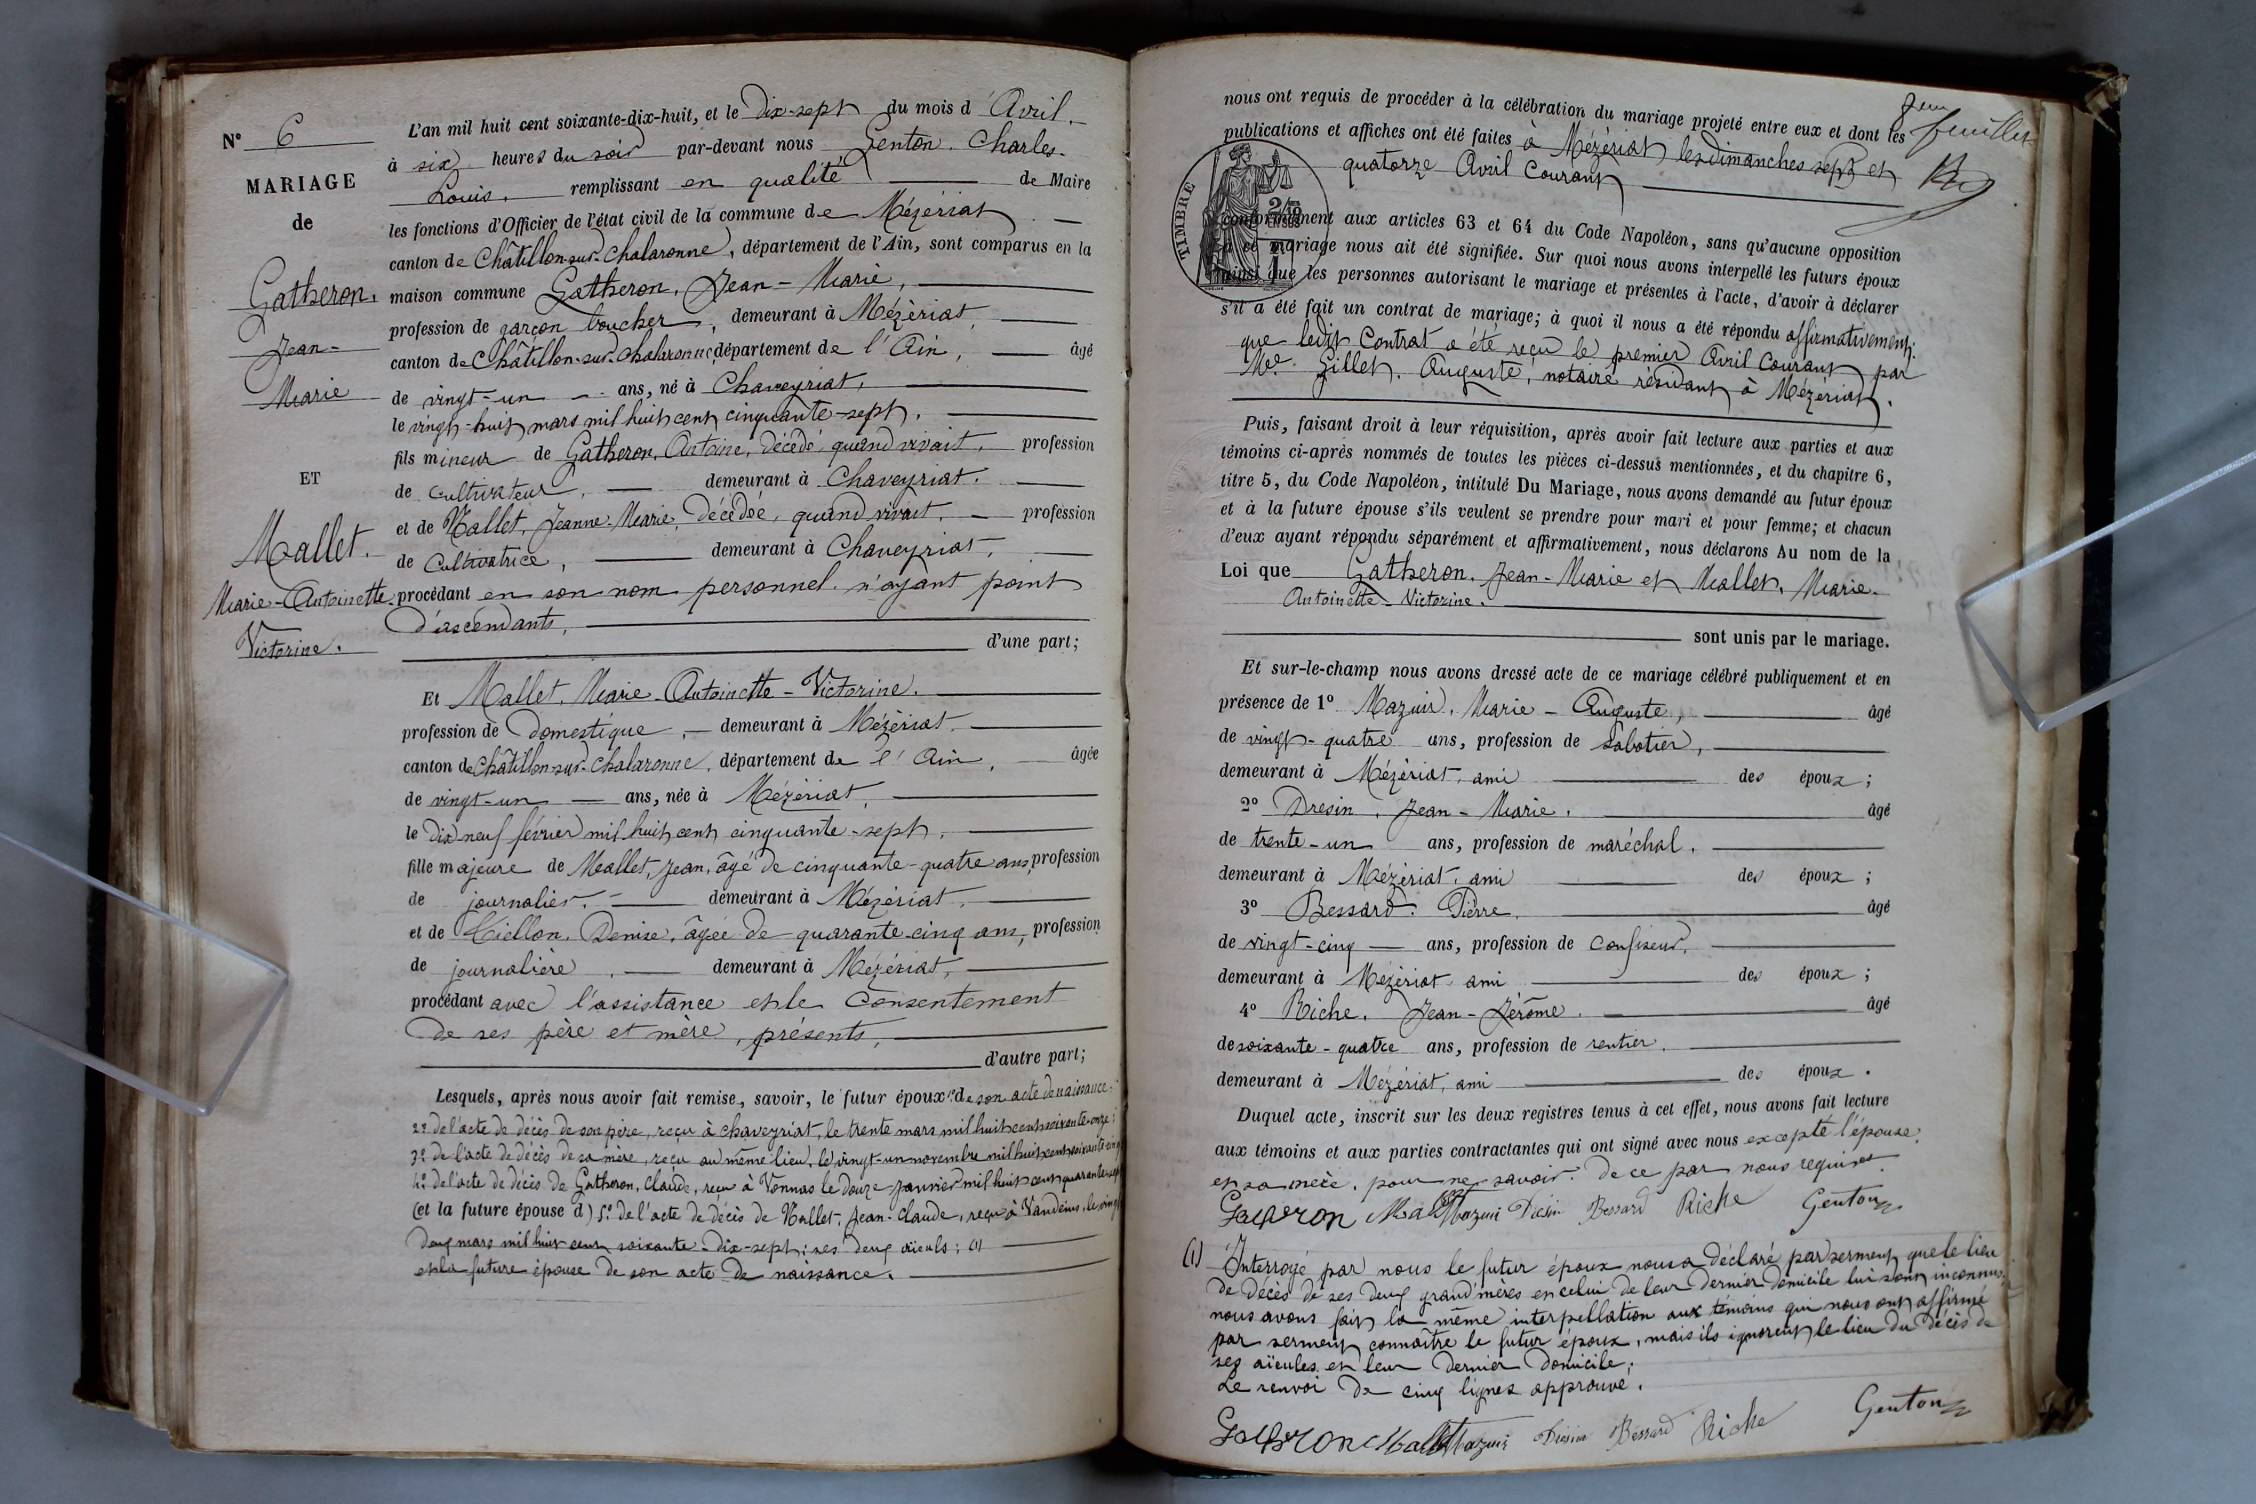 N° 6
MARIAGE
de
Gatheron,
Jean-
Marie
ET
Mallet.
Marie-Antoinette-
Victorine.
L'an mil huit cent soixante-dix-huit, et le dix-sept du mois d'Avril.
à six heures du soir par-devant nous Genton. Charles-
Louis. remplissant en qualité de Maire
les fonctions d'Officier de l'état civil de la commune de Mézériat
canton de Châtillon-sur-Chalaronne, département de l'Ain, sont comparus en la
maison commune Gatheron, Jean-Marie,
profession de garçon boucher, demeurant à Mézériat,
canton de Châtillon-sur-Chalaronne, département de l'Ain, âgé
de vingt-un ans, né à Chaveyriat,
le vingt-huit mars mil huit cent cinquante-sept,
fils mineur de Gatheron, Antoine, décédé, quand vivait, profession
de cultivateur, demeurant à Chaveyriat.
et de Mallet, Jeanne-Marie, décédée, quand vivait, profession
de cultivatrice, demeurant à Chaveyriat,
procédant en son nom personnel n'ayant point
d'ascendants,
d'une part;
Et Mallet, Marie-Antoinette-Victorine.
profession de domestique, demeurant à Mézériat.
canton de Châtillon-sur-Chalaronne, département de l'Ain, âgée
de vingt-un ans, née à Mézériat,
le dix-neuf février mil huit cent cinquante-sept,
fille majeure de Mallet, Jean, âgé de cinquante-quatre ans, profession
de journalier, demeurant à Mézériat,
et de Denise, âgée de quarante-cinq ans, profession
de journalière, demeurant à Mézériat,
procédant avec l'assistance et le consentement
de ses père et mère, présents,
d'autre part;
Lesquels, après nous avoir fait remise, savoir, le futur époux 1° de son acte de naissance;
2° de l'acte de décès de son père, reçu à Chaveyriat, le trente mars mil huit cent soixante-onze;
3° de l'acte de décès de sa mère, reçu au même lieu, le vingt-un novembre mil huit cent soixante-cinq
4° de l'acte de décès de Gatheron, Claude, reçu à Vonnas le douze janvier mil huit cent quarante-sept
(et la future épouse d) 5° de l'acte de décès de Mallet, Jean-Claude, reçu à Vandeins, le vingt
deux mars mil huit cent soixante-dix-sept; ses deux aïeuls; (1)
et la future épouse de son acte de naissance.
feuillet
nous ont requis de procéder à la célébration du mariage projeté entre eux et dont les
publications et affiches ont été faites à Mézériat les dimanches sept et
quatorze Avril Courant
TIMBRE
conformément aux articles 63 et 64 du Code Napoléon, sans qu'aucune opposition
à ce mariage nous ait été signifiée. Sur quoi nous avons interpellé les futurs époux
ainsi que les personnes autorisant le mariage et présentes à l'acte, d'avoir à déclarer
s'il a été fait un contrat de mariage; à quoi il nous a été répondu affirmativement;
que ledit Contrat a été reçu le premier Avril Courant par
Me. Gillet, Auguste, notaire résidant à Mézériat.
Puis, faisant droit à leur réquisition, après avoir fait lecture aux parties et aux
témoins ci-après nommés de toutes les pièces ci-dessus mentionnées, et du chapitre 6,
titre 5, du Code Napoléon, intitulé Du Mariage, nous avons demandé au futur époux
et à la future épouse s'ils veulent se prendre pour mari et pour femme; et chacun
d'eux ayant répondu séparément et affirmativement, nous déclarons Au nom de la
Loi que Gatheron, Jean-Marie et Mallet, Marie-
Antoinette-Victorine.
sont unis par le mariage.
Et sur-le-champ nous avons dressé acte de ce mariage célébré publiquement et en
présence de 1° Mazuir, Marie-Auguste, âgé
de vingt-quatre ans, profession de sabotier,
demeurant à Mézériat, ami des époux;
2° Dresin, Jean-Marie, âgé
de trente-un ans, profession de maréchal.
demeurant à Mézériat, ami des époux;
3° Bessard. Pierre. âgé
de vingt-cinq ans, profession de confiseur,
demeurant à Mézériat ami des époux;
4° Riche. Jean-Jérôme. âgé
de soixante-quatre ans, profession de rentier.
demeurant à Mézériat, ami des époux.
Duquel acte, inscrit sur les deux registres tenus à cet effet, nous avons fait lecture
aux témoins et aux parties contractantes qui ont signé avec nous excepté l'épouse,
et sa mère, pour ne savoir. de ce par nous requises.
Gatheron Mallet Mazuir Dresin Bessard Riche Genton
(1) Interrogé par nous le futur époux nous a déclaré par serment que le lieu
de décès de ses deux grand'mères et celui de leur dernier domicile lui sont inconnus,
nous avons fait la même interpellation aux témoins qui nous ont affirmé
par serment connaître le futur époux, mais ils ignorent le lieu du décès de
ses aïeules et leur dernier domicile;
Le renvoi de cinq lignes approuvé.
Gatheron Mallet Mazuir Dresin Bessard Riche Genton